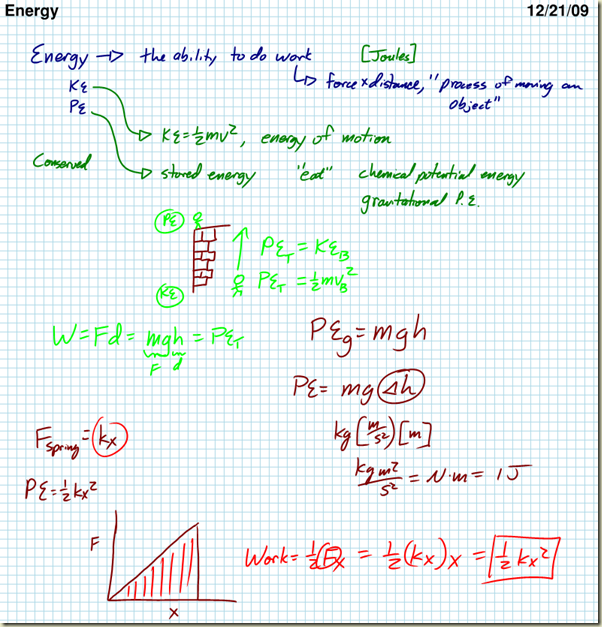 Energy 12/21/09
Energy → the ability to do work [Joules]
↳ force x distance, "process of moving an
object"
KE
PE
KE = ½mv², energy of motion
Conserved
stored energy "eat" chemical potential energy
gravitational P.E.
PE
PE_T = KE_B
PE_T = ½mv_B²
KE
W = Fd = mgh = PE_T
F d
PE_g = mgh
PE = mg Δh
kg [m/s²] [m]
kg m²/s² = N·m = 1 J
F_spring = kx
PE = ½kx²
F
x
Work = ½(F)x = ½(kx)x = ½kx²